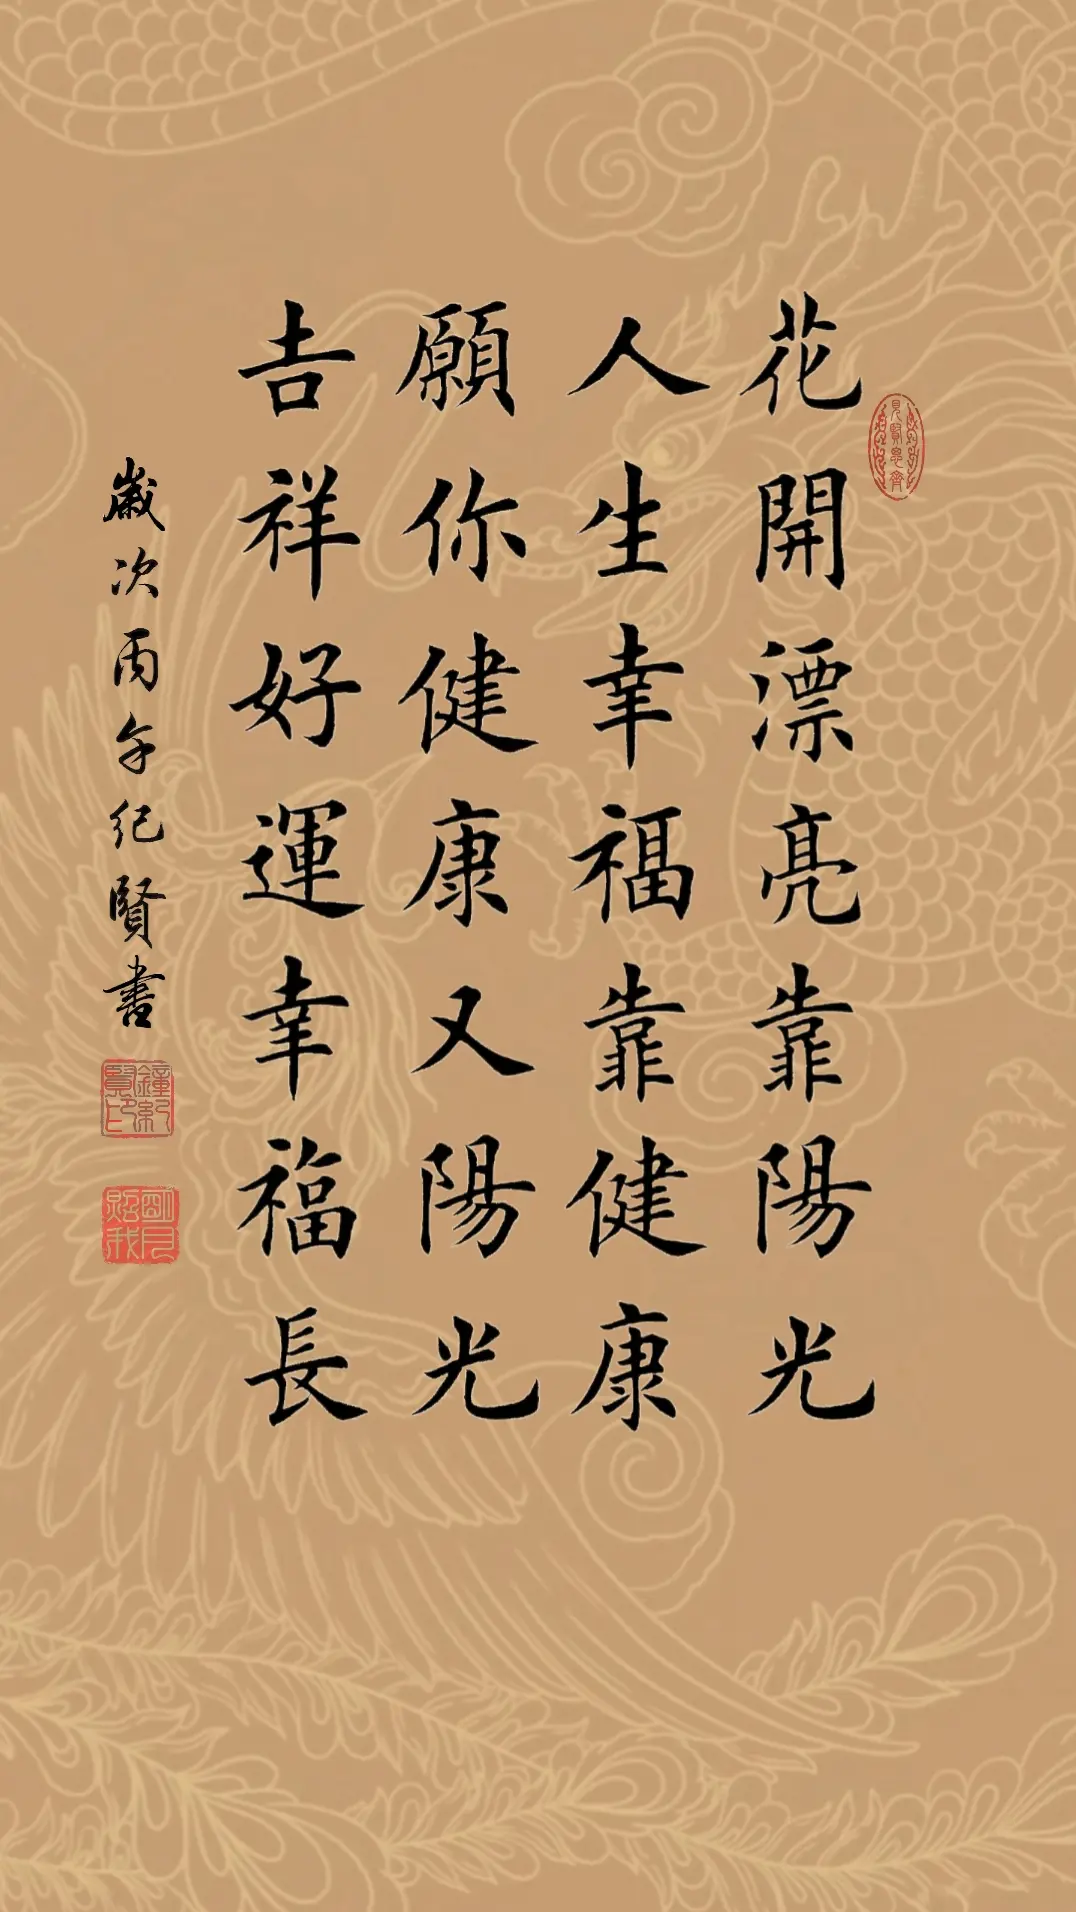 花開漂亮靠陽光
人生幸福靠健康
願你健康又陽光
吉祥好運幸福長
歲次丙午紀賢書
鐘紀賢印